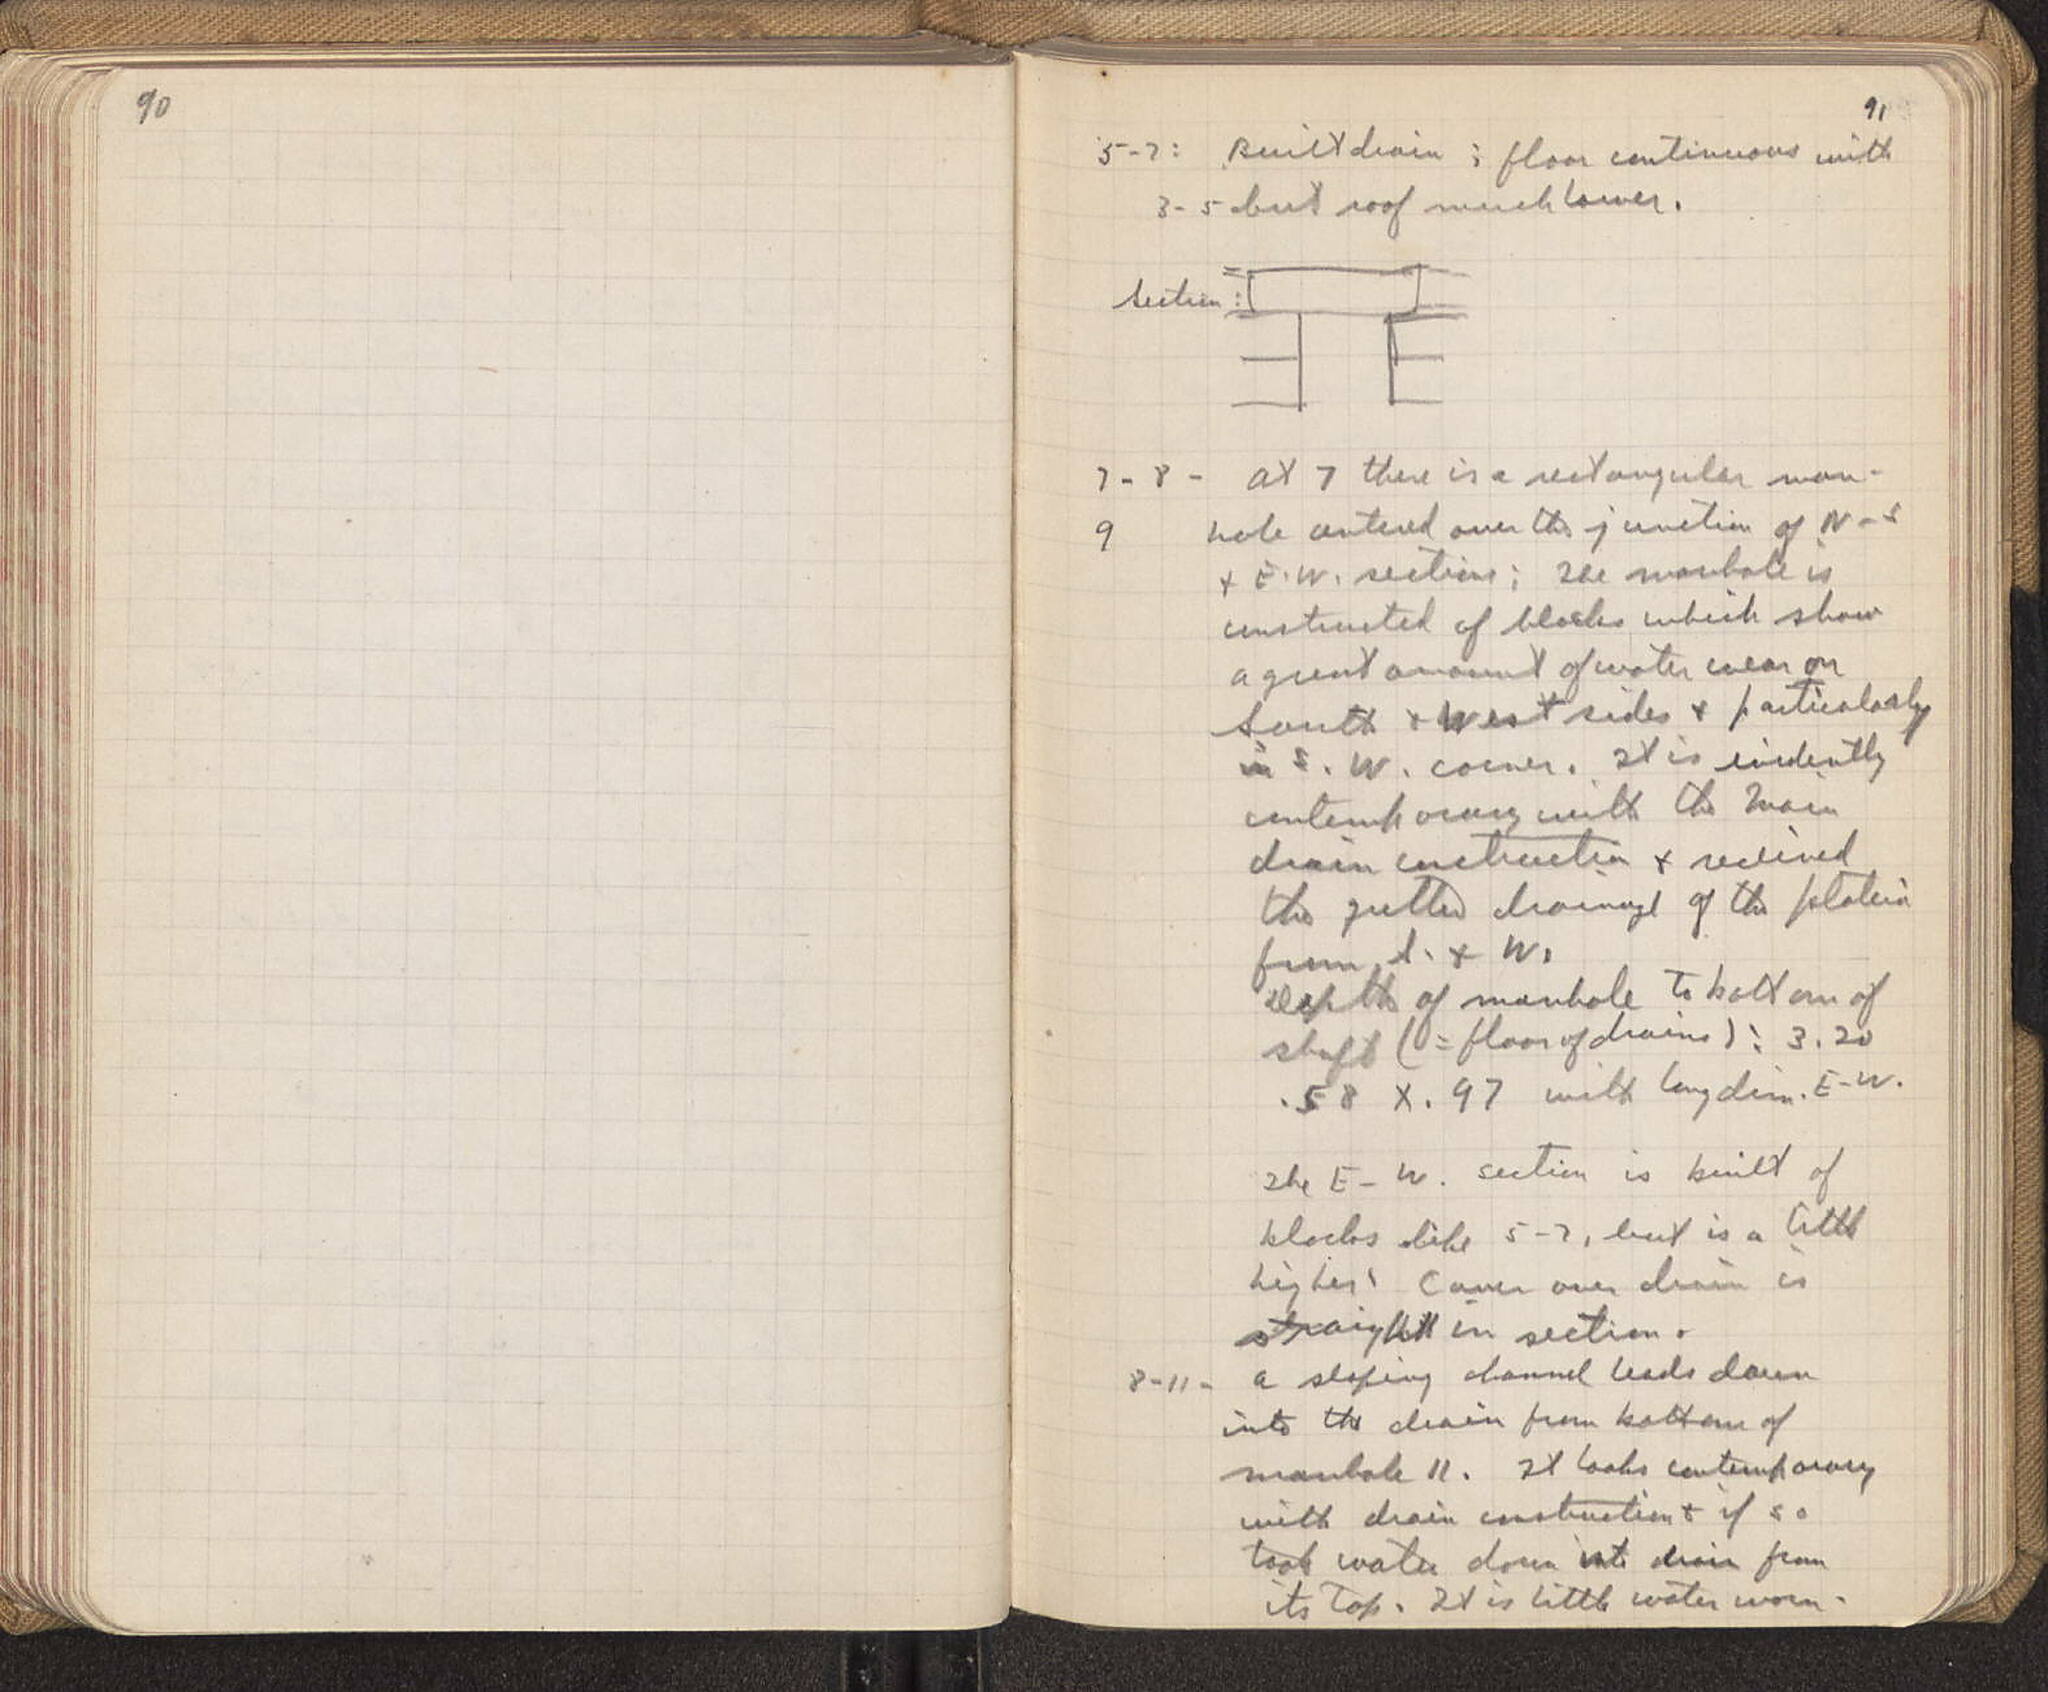 90
91
5-7: Built drain; floor continuous with
3-5 but roof much lower.
Section:
7-8- At 7 there is a rectangular man-
9 hole centered over the junction of N-S
+ E.W. sections; The manhole is
constructed of blocks which show
a great amount of water wear on
South + West sides + particularly
in S.W. corner. It is evidently
contemporary with the main
drain construction + received
the gutter drainage of the plateia
from S. + W.
Depth of manhole to bottom of
shaft (= floor of drains): 3.20
.58 X .97 with long dim. E-W.
The E-W. section is built of
blocks like 5-7, but is a little
higher. Cover over drain is
straight in section.
8-11- A sloping channel leads down
into the drain from bottom of
manhole 11. It looks contemporary
with drain construction + if so
took water down into drain from
its top. It is little water worn.